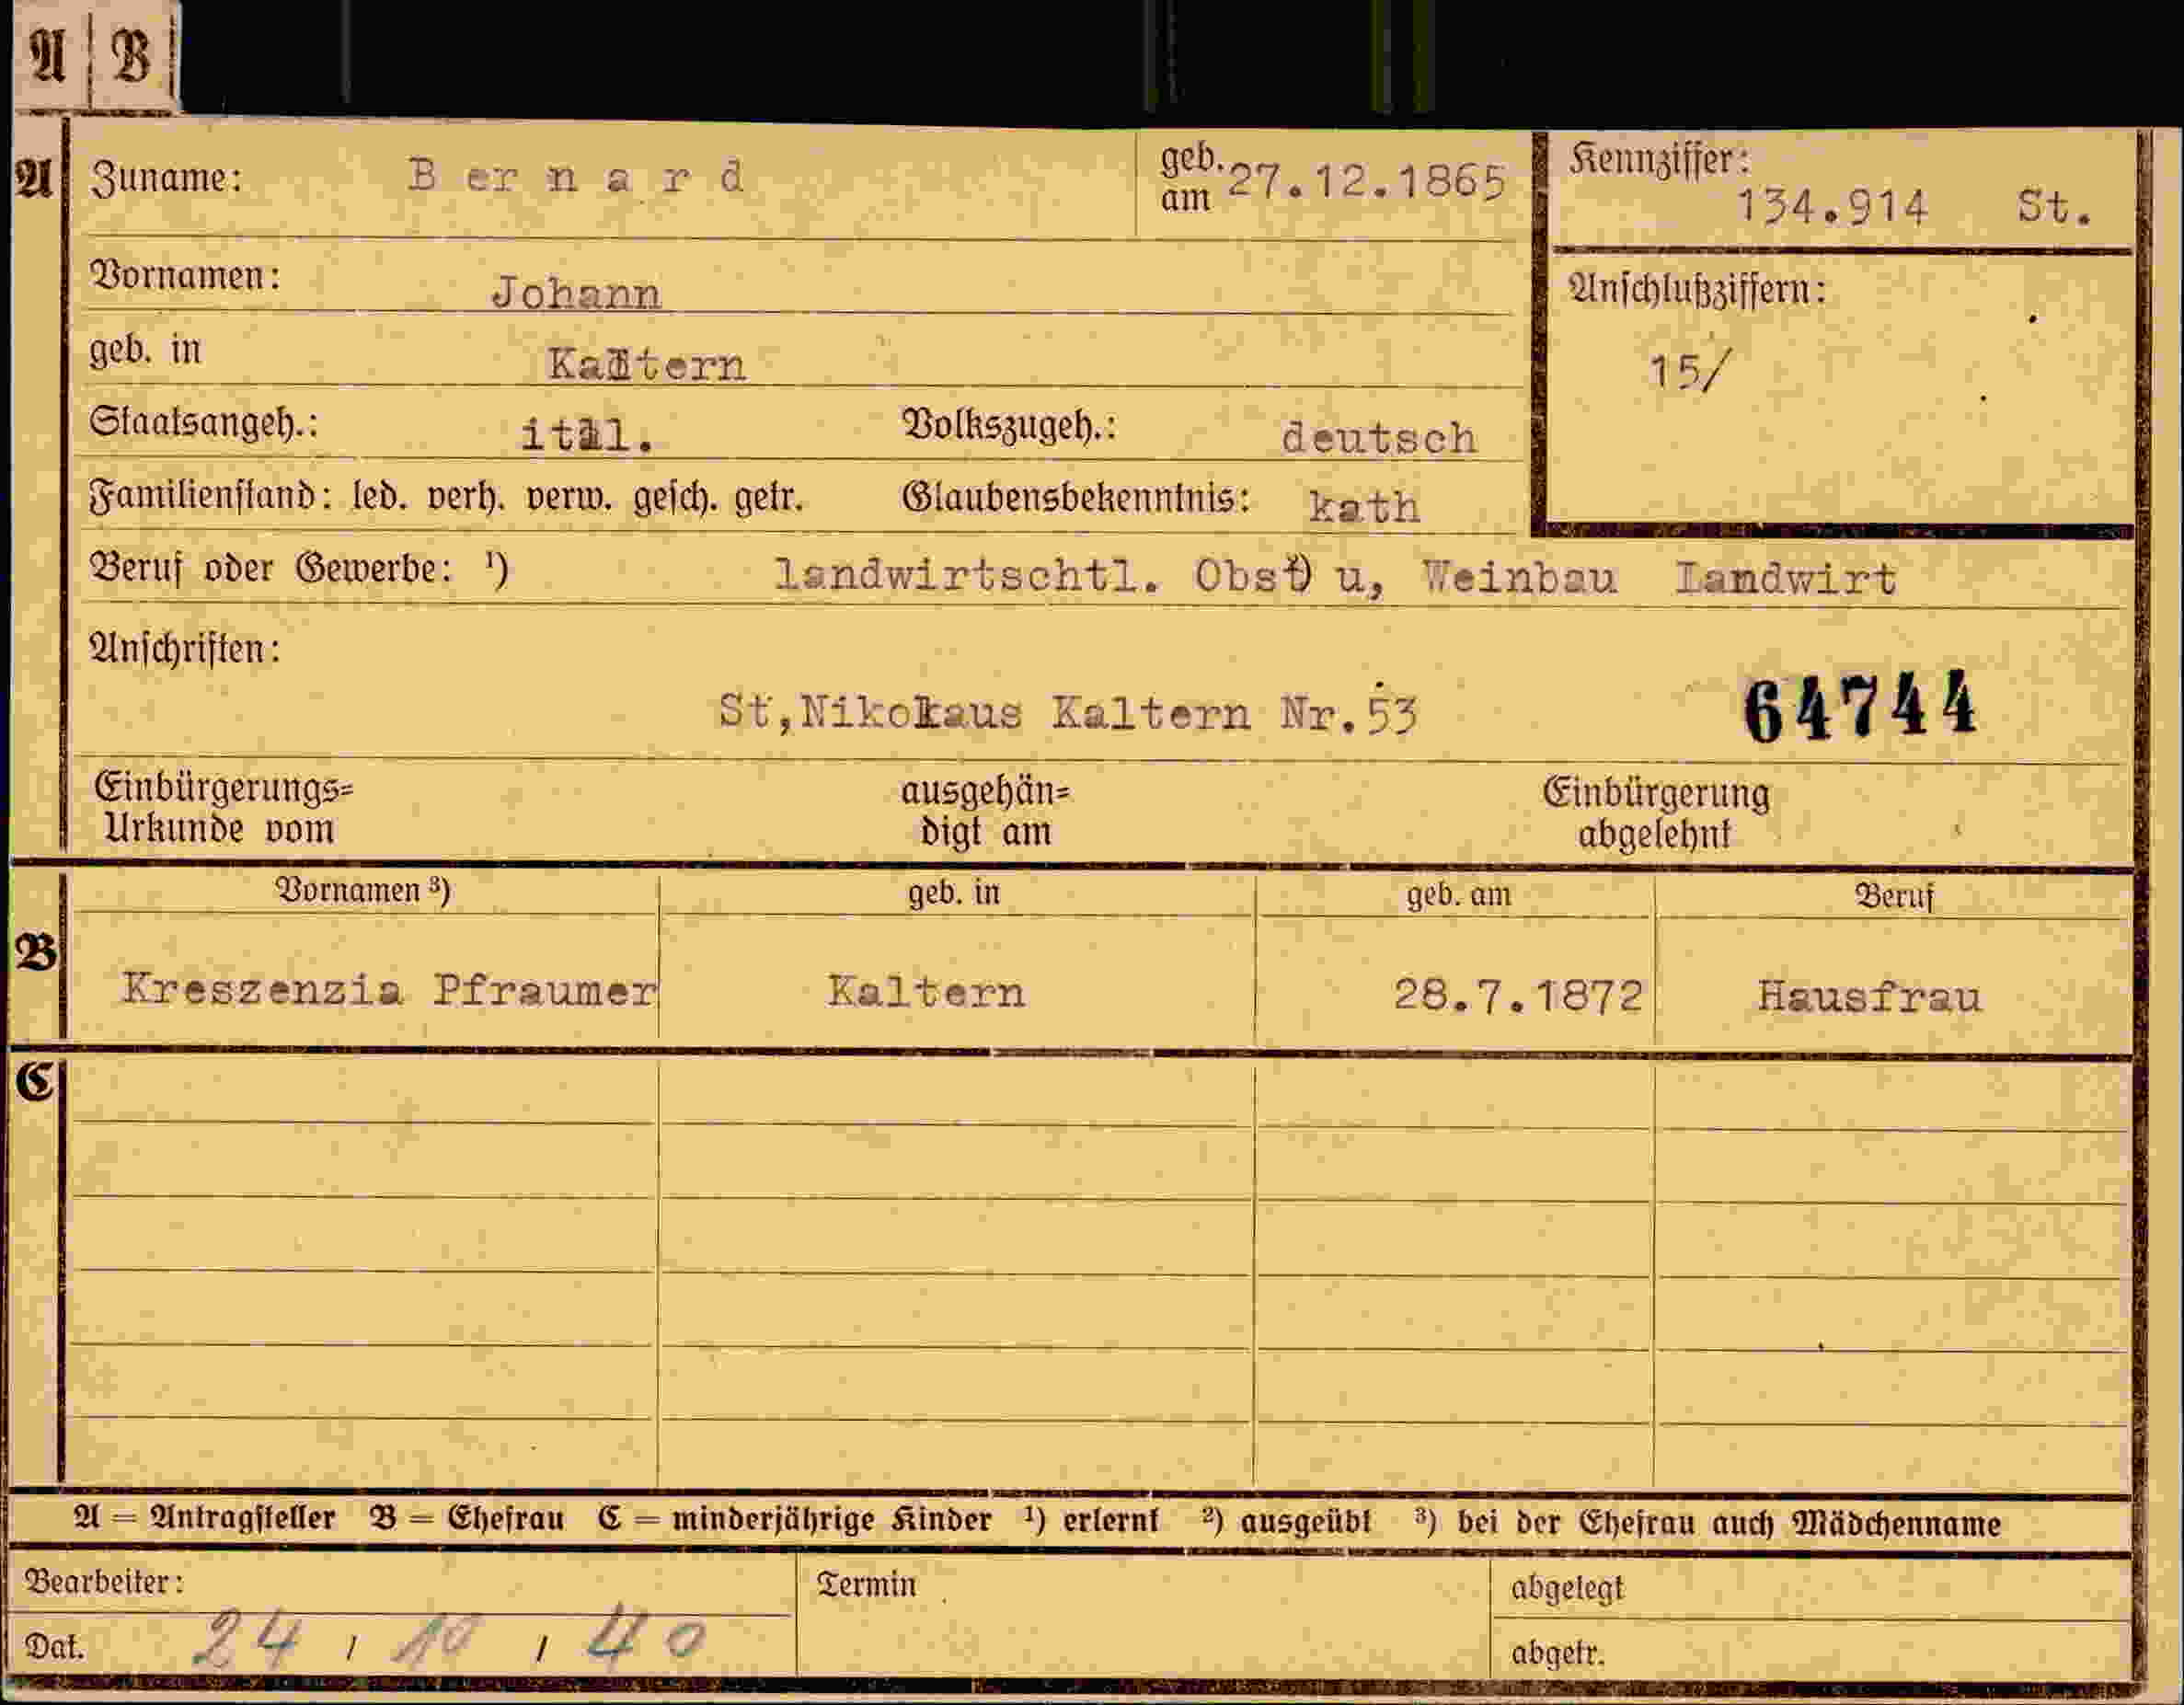 A B
A Zuname: Bernard geb. am 27.12.1865 Kennziffer: 134.914 St.
Vornamen: Johann Anschlußziffern:
geb. in Kaltern 15/
Staatsangeh.: ital. Volkszugeh.: deutsch
Familienstand: led. verh. verw. gesch. getr. Glaubensbekenntnis: kath
Beruf oder Gewerbe: ¹) landwirtschtl. Obst ²) u, Weinbau Landwirt
Anschriften:
St,Nikolaus Kaltern Nr.53 64744
Einbürgerungs= ausgehän= Einbürgerung
Urkunde vom digt am abgelehnt
B Vornamen ³) geb. in geb. am Beruf
Kreszenzia Pfraumer Kaltern 28.7.1872 Hausfrau
C
A = Antragsteller B = Ehefrau C = minderjährige Kinder ¹) erlernt ²) ausgeübt ³) bei der Ehefrau auch Mädchenname
Bearbeiter: Termin abgelegt
Dat. 24 / 10 / 40 abgetr.